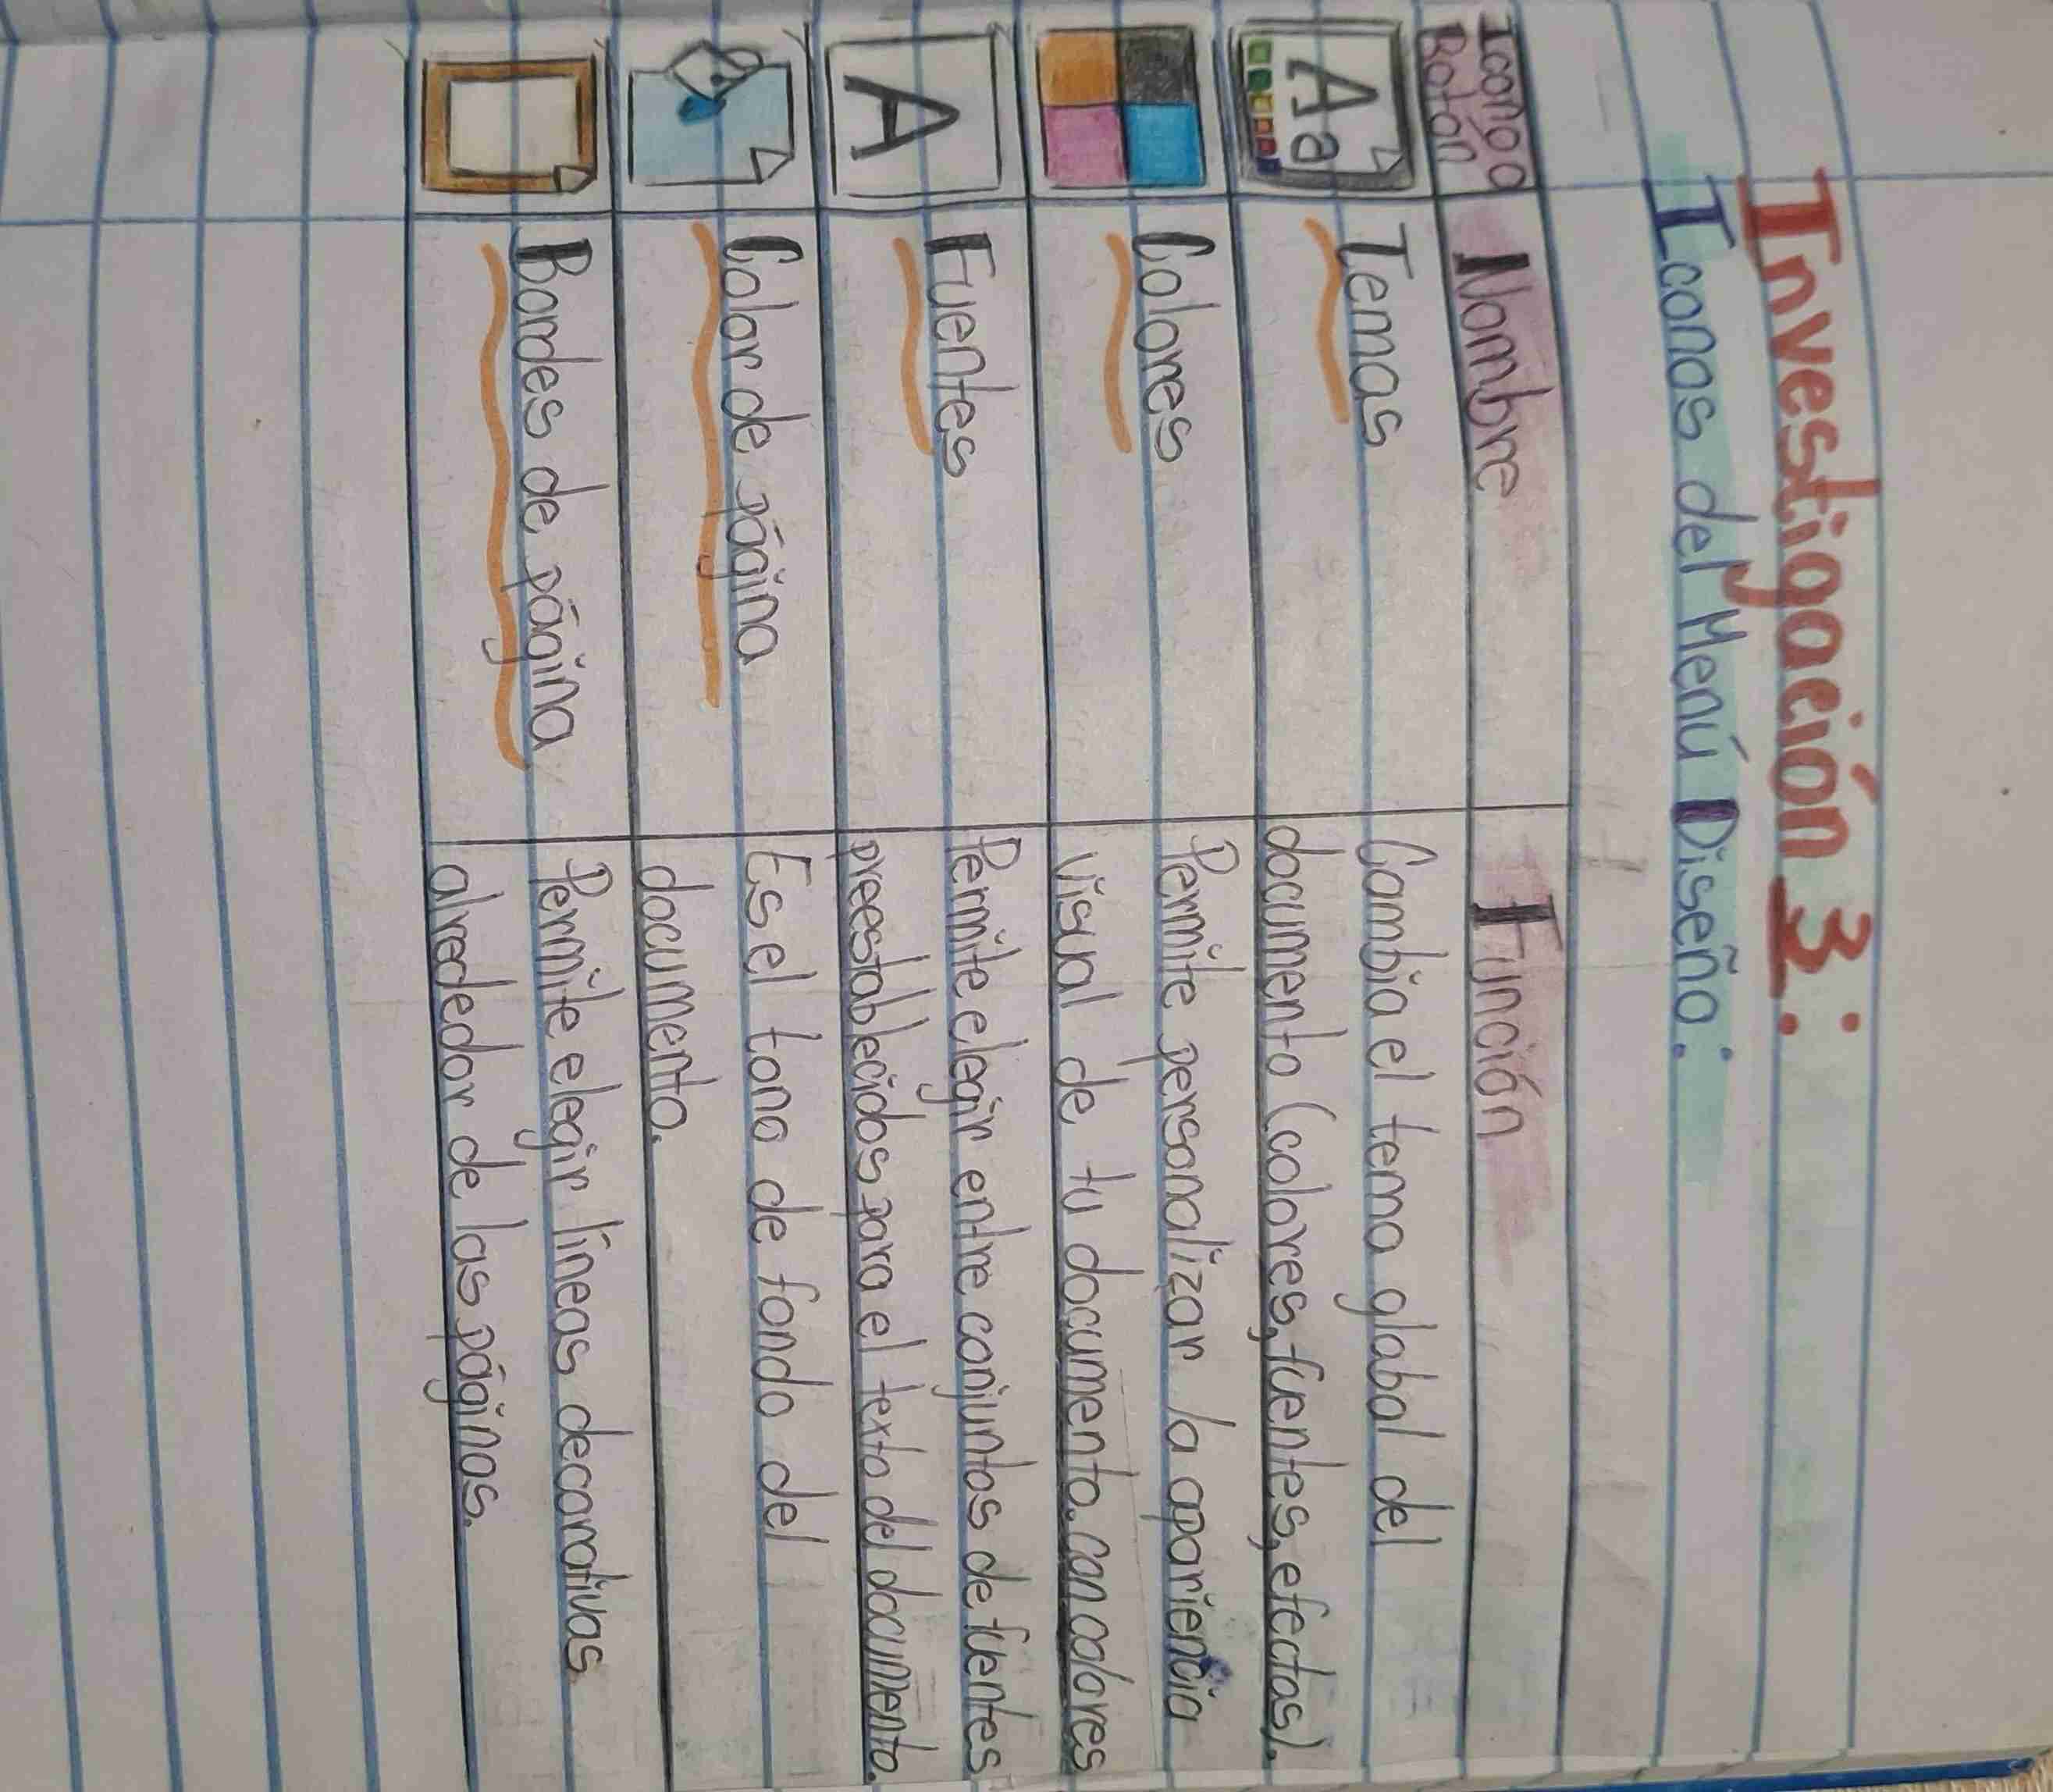 Investigación 3:
Iconos del Menú Diseño:
Icono o
Botón
Nombre
Función
Aa
Temas
Cambia el tema global del
documento (colores, fuentes, efectos).
Colores
Permite personalizar la apariencia
visual de tu documento, con colores
A
Fuentes
Permite elegir entre conjuntos de fuentes
preestablecidos para el texto del documento.
Color de página
Es el tono de fondo del
documento.
Bordes de página
Permite elegir líneas decorativas
alrededor de las páginas.